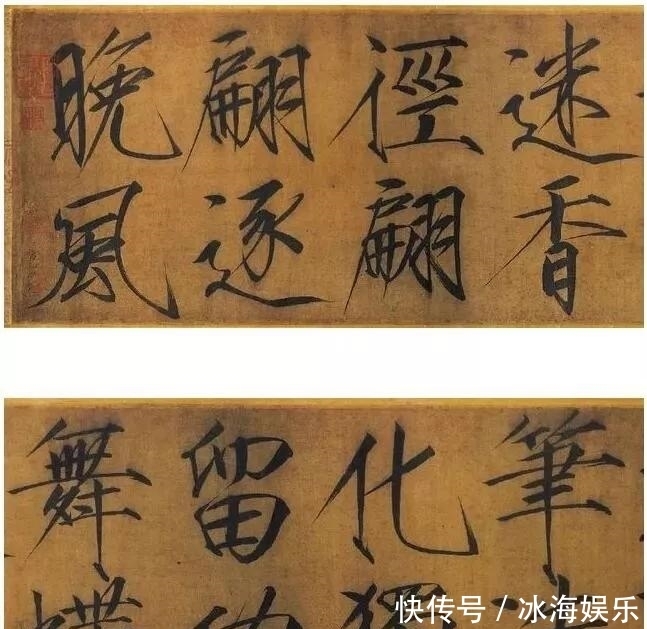 迷香
徑翩
翩逐
晚風
筆
化獨
留
舞蝶
快传号 / 冰海娱乐